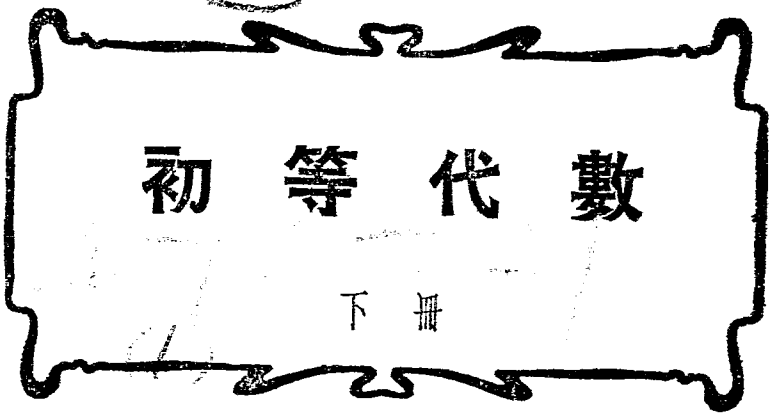 初等代數
下冊